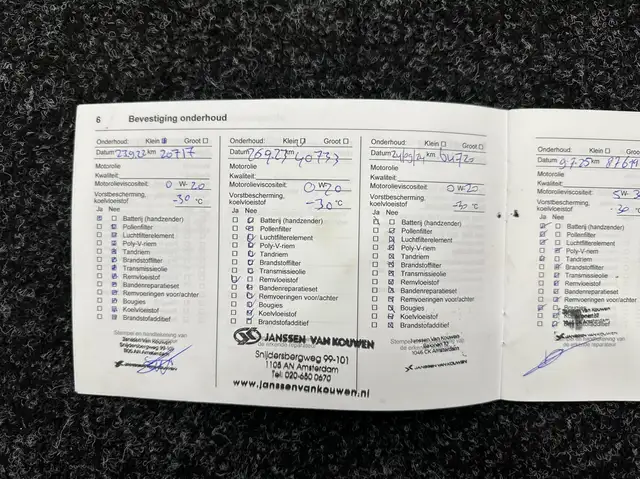 6 Bevestiging onderhoud
Onderhoud: Klein Groot
Datum 22.9.22 km 20717
Motorolie
Kwaliteit:
Motorolieviscositeit: 0 W-20
Vorstbescherming,
koelvloeistof -30 °C
Ja Nee
Batterij (handzender)
Pollenfilter
Luchtfilterelement
Poly-V-riem
Tandriem
Brandstoffilter
Transmissieolie
Remvloeistof
Bandenreparatieset
Remvoeringen voor/achter
Bougies
Koelvloeistof
Brandstofadditief
Stempel en handtekening van
Janssen van Kouwen
Snijdersbergweg 99-101
1105 AN Amsterdam
JANSSEN VAN KOUWEN
Onderhoud: Klein Groot
Datum 26.9.23 km 40733
Motorolie
Kwaliteit:
Motorolieviscositeit: 0 W-20
Vorstbescherming,
koelvloeistof -30 °C
Ja Nee
Batterij (handzender)
Pollenfilter
Luchtfilterelement
Poly-V-riem
Tandriem
Brandstoffilter
Transmissieolie
Remvloeistof
Bandenreparatieset
Remvoeringen voor/achter
Bougies
Koelvloeistof
Brandstofadditief
JANSSEN VAN KOUWEN
Snijdersbergweg 99-101
1105 AN Amsterdam
Tel: 020-650 0670
www.janssenvankouwen.nl
Onderhoud: Klein Groot
Datum km
Motorolie
Kwaliteit:
Motorolieviscositeit: 0 W-20
Vorstbescherming,
koelvloeistof -30 °C
Ja Nee
Batterij (handzender)
Pollenfilter
Luchtfilterelement
Poly-V-riem
Tandriem
Brandstoffilter
Transmissieolie
Remvloeistof
Bandenreparatieset
Remvoeringen voor/achter
Bougies
Koelvloeistof
Brandstofadditief
Janssen van Kouwen
1046 CK Amsterdam
JANSSEN VAN KOUWEN
Onderhoud: Klein
Datum 9.7.25 km
Motorolie
Kwaliteit:
Motorolieviscositeit: 5W-
Vorstbescherming,
koelvloeistof -30
Ja Nee
Batterij (handzender)
Pollenfilter
Luchtfilterelement
Poly-V-riem
Tandriem
Brandstoffilter
Transmissieolie
Remvloeistof
Bandenreparatieset
Remvoeringen voor/achter
Bougies